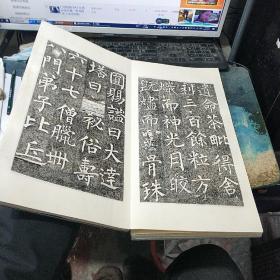 遺命荼毗得舍
利三百餘粒方
熾而神光月皎
既燼而靈骨珠
圓賜謚曰大達
塔曰玄秘俗壽
六十七僧臘卌
八門弟子比丘